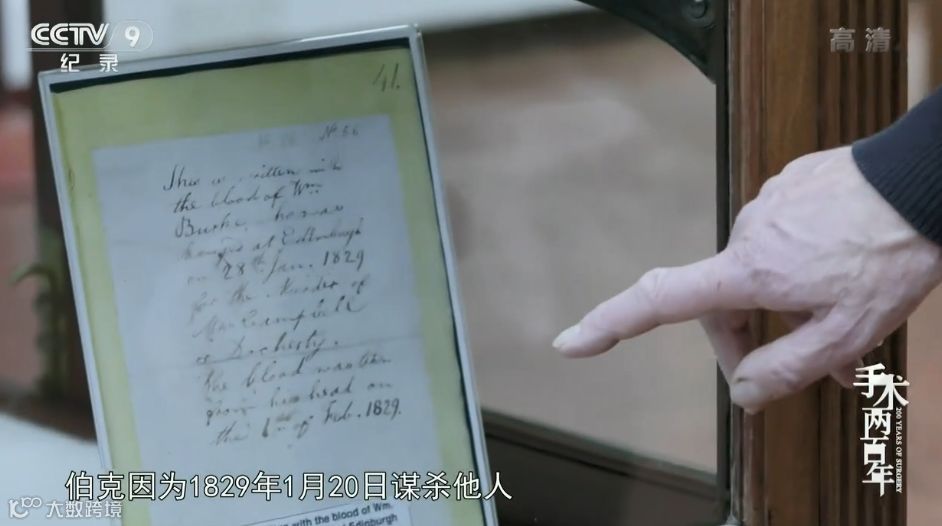 CCTV 9
纪录
高清
41.
No 66
This is written with
the blood of Wm
Burke, who was
hanged at Edinburgh
on 28th Jan. 1829
for the Murder of
Mrs Campbell
or Docherty.
The blood was taken
from his head on
the 1st of Feb. 1829.
手术两百年
200 YEARS OF SURGERY
伯克因为1829年1月20日谋杀他人
with the blood of Wm.
Edinburgh
大数跨境